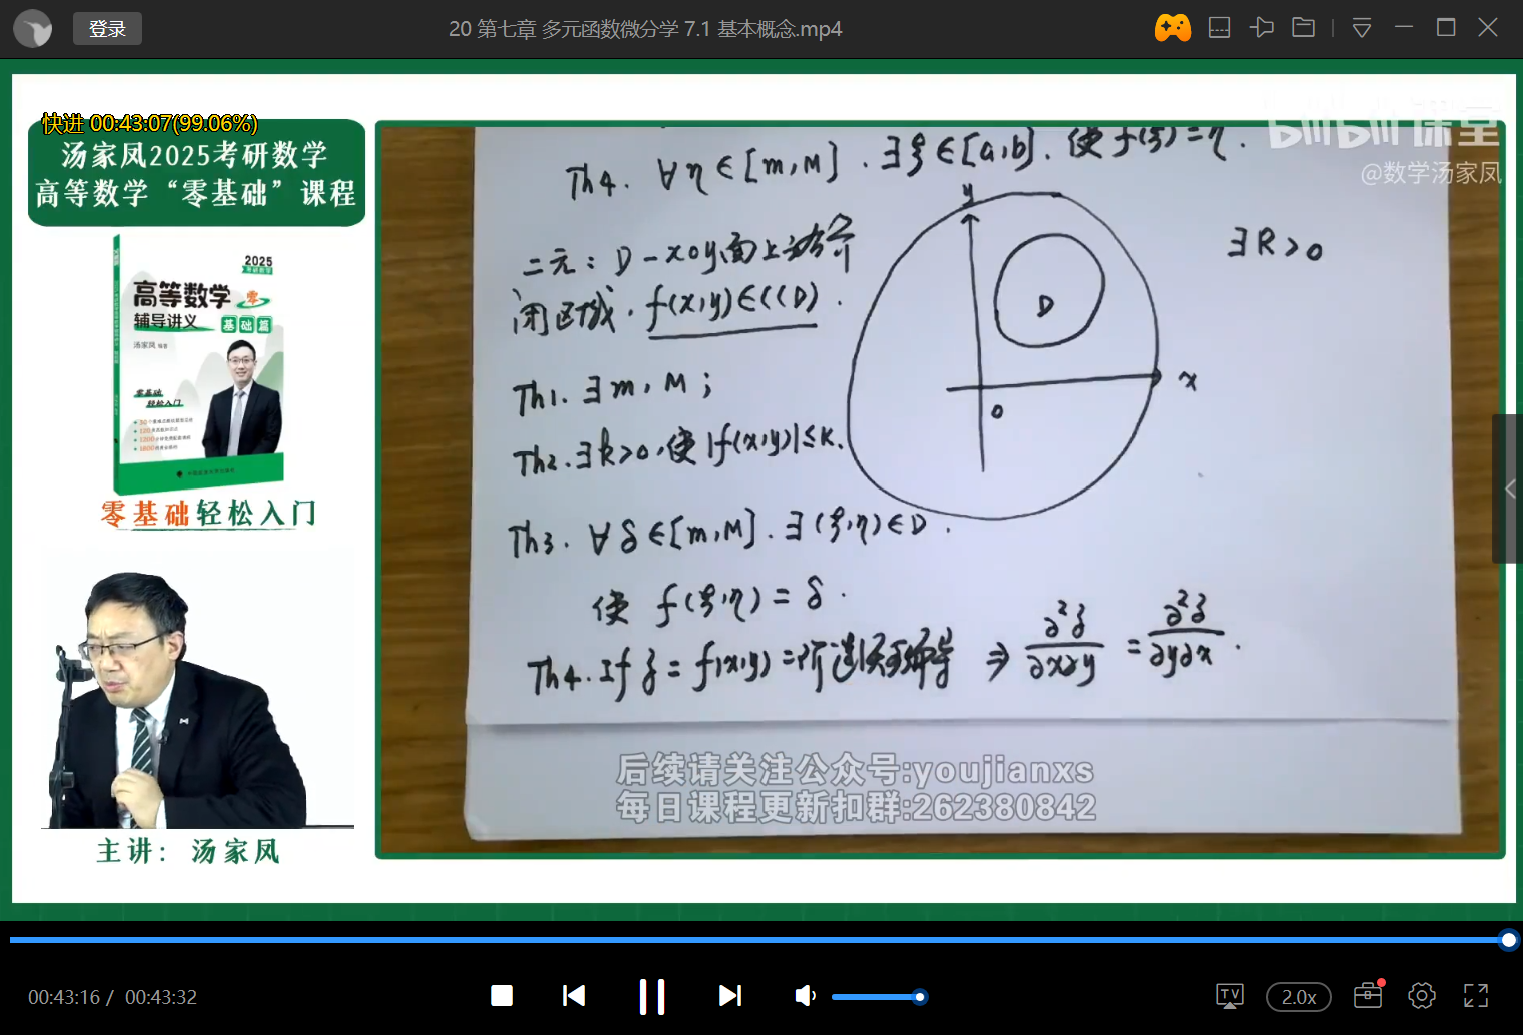 登录
20 第七章 多元函数微分学 7.1 基本概念.mp4
快进 00:43:07(99.06%)
汤家凤2025考研数学
高等数学“零基础”课程
2025
高等数学 零
辅导讲义 基础篇
汤家凤 编著
零基础
轻松入门
零基础轻松入门
主讲：汤家凤
bilibili 课堂
@数学汤家凤
Th4. ∀η∈[m,M]. ∃ξ∈[a,b]. 使f(ξ)=η.
二元: D-xoy面上有界
闭区域. f(x,y)∈C(D).
Th1. ∃m, M;
Th2. ∃k>0, 使|f(x,y)|≤k.
Th3. ∀δ∈[m,M]. ∃(ξ,η)∈D.
使 f(ξ,η)=δ.
Th4. If z=f(x,y)=阶连续可偏导 ⇒ ∂²z/∂x∂y = ∂²z/∂y∂x.
y
D
x
o
∃R>0
后续请关注公众号:youjianxs
每日课程更新扣群:262380842
00:43:16 / 00:43:32
TV
2.0x